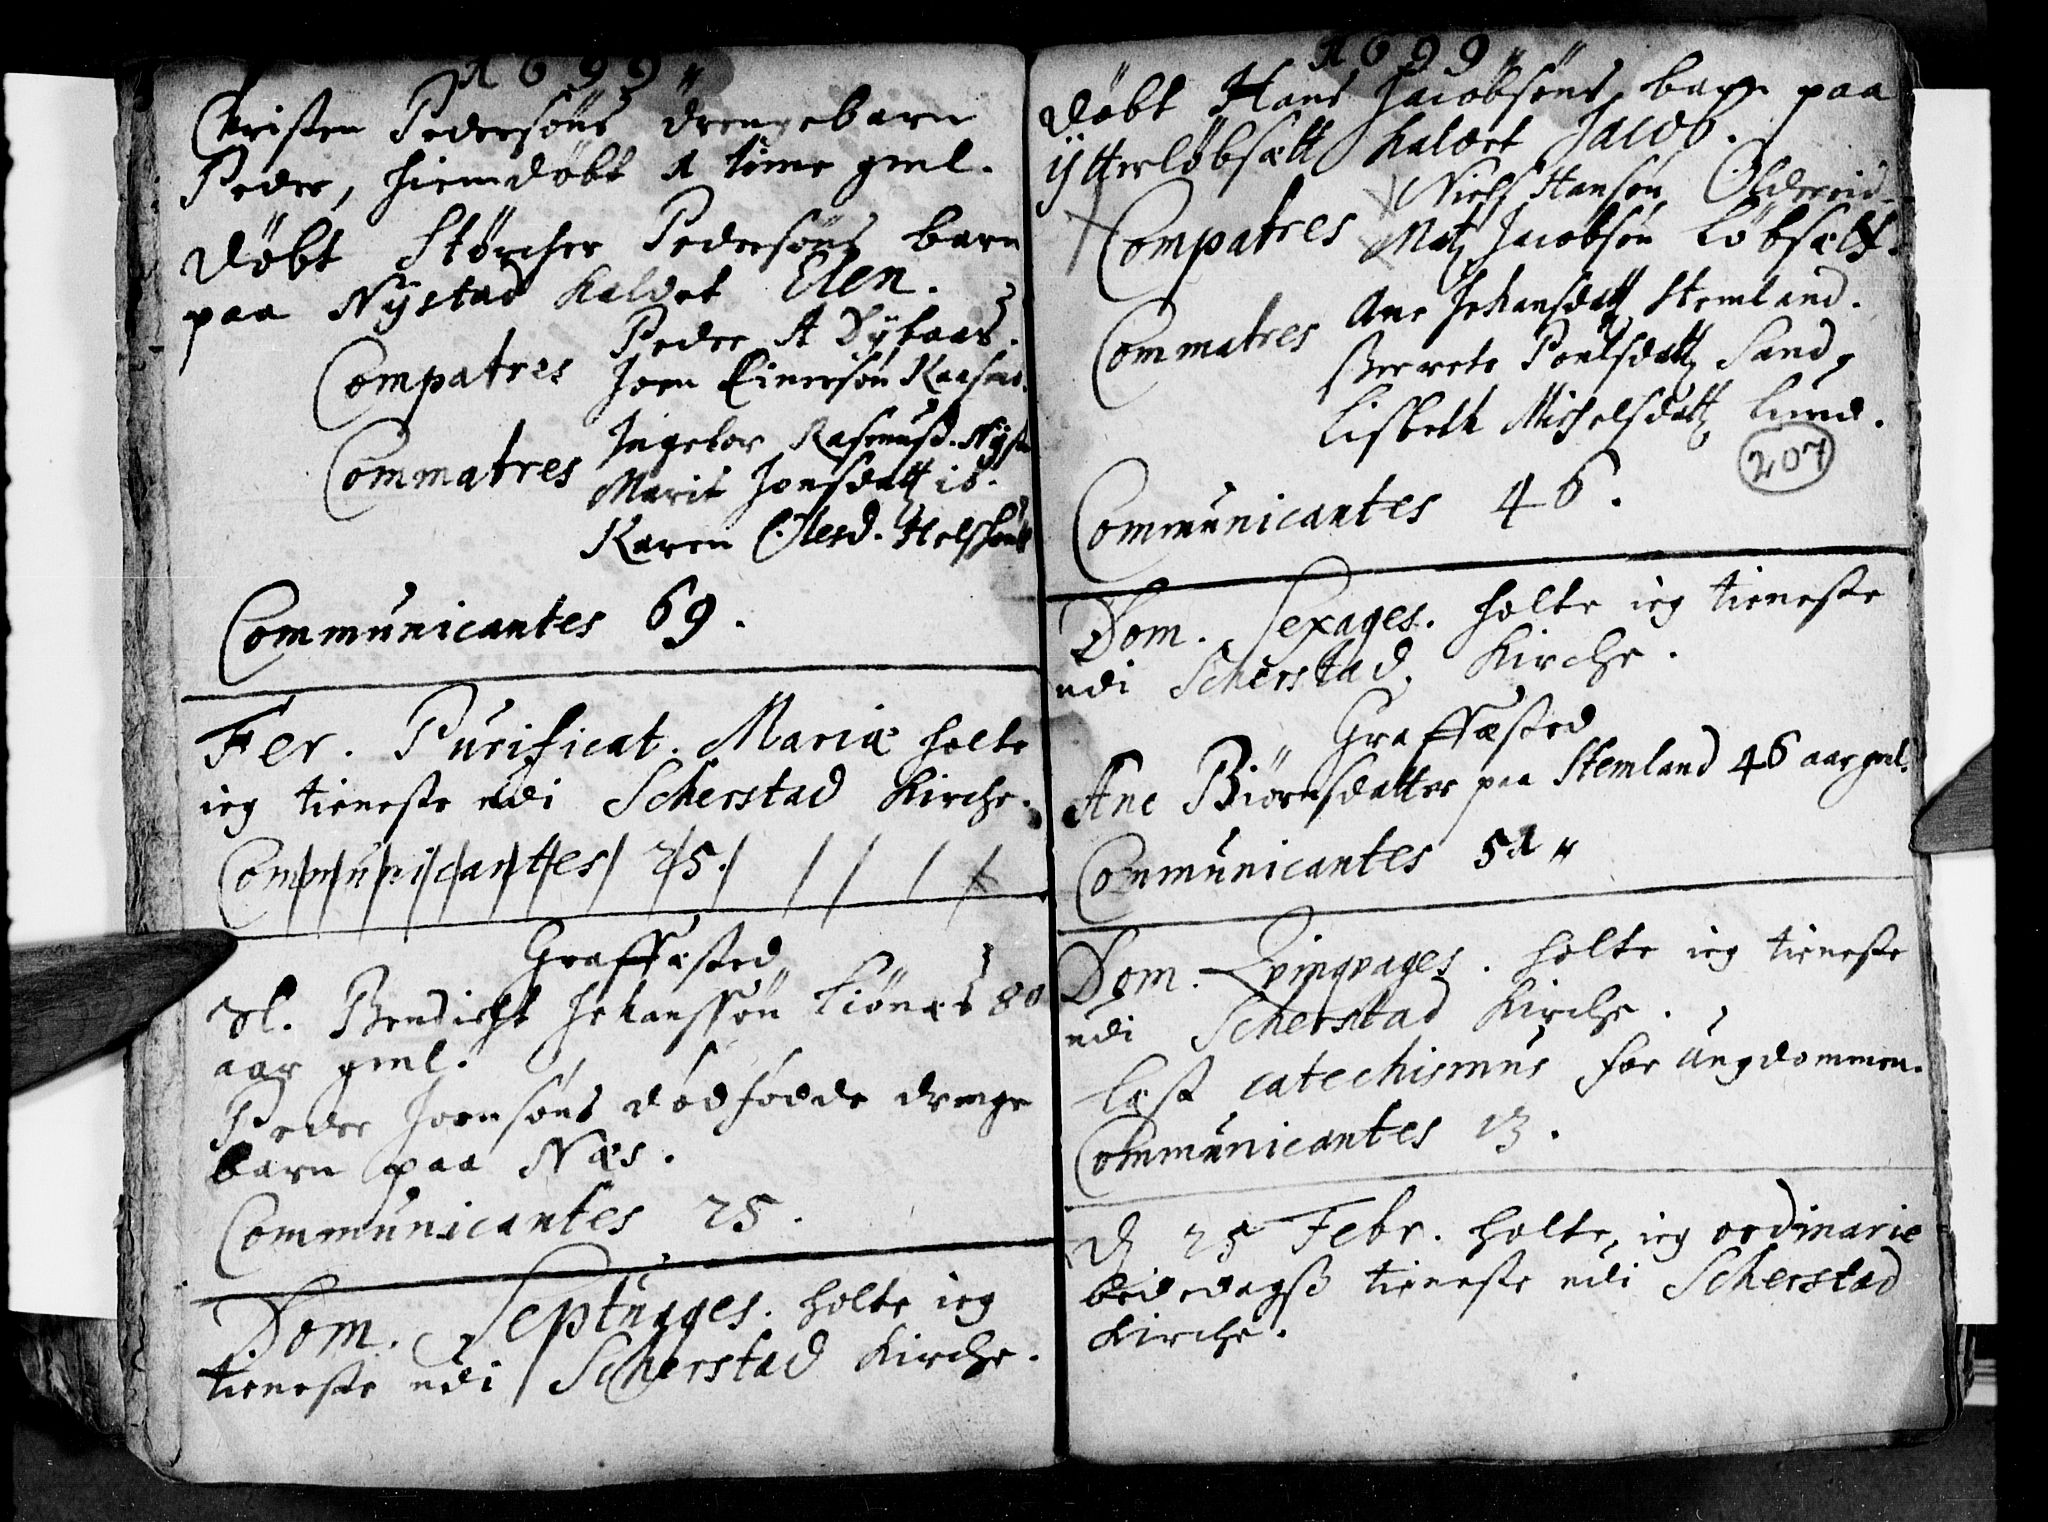 1699„
Christen Pedersøns drengebarn
Peder, hiemdøbt 1 time gml.
Døbt Størcher Pedersøns barn
paa Nÿstad kaldet Elen.
Compatres Peder A Dybaas.
Joen Einersøn
Commatres Ingebor Rasmusd. Nÿst
Marit Jonsdatt ib.
Karen Olesd.
Communicantes 69.
Fer. Purificat. Mariæ holte
ieg tieneste udi Scherstad Kirche.
Communicantes 25.
Graffæsted
Sl. Bendicht Johanssøn Liønæs 80
aar gml.
Peder Joensøns dødfødde drenge
barn paa Næs.
Communicantes 25.
Dom. Septuages. holte ieg
tieneste udi Scherstad Kirche.
1699„
Døbt Hans Jacobsøns barn paa
ÿtterløbsætt kaldet Jacob.
Compatres Niels Hansøn Oldereid.
Matz Jacobsøn Løbsætt.
Commatres Ane Johansdatt Stemland.
Berrete Poulsdatt Sand,
Lisbeth Michelsdatt Lund.
207
Communicantes 46.
Dom. Sexages. holte ieg tieneste
udi Scherstad Kirche.
Graffæsted
Ane Biørnsdatter paa Stemland 46 aar gml.
Communicantes 51„
Dom. Qvinqvages. holte ieg tieneste
udi Scherstad Kirche.
læst catechismus for Ungdommen.
Communicantes 13.
D 25 Febr. holte ieg ordinarie
bededagsß tieneste udi Scherstad
Kirche.